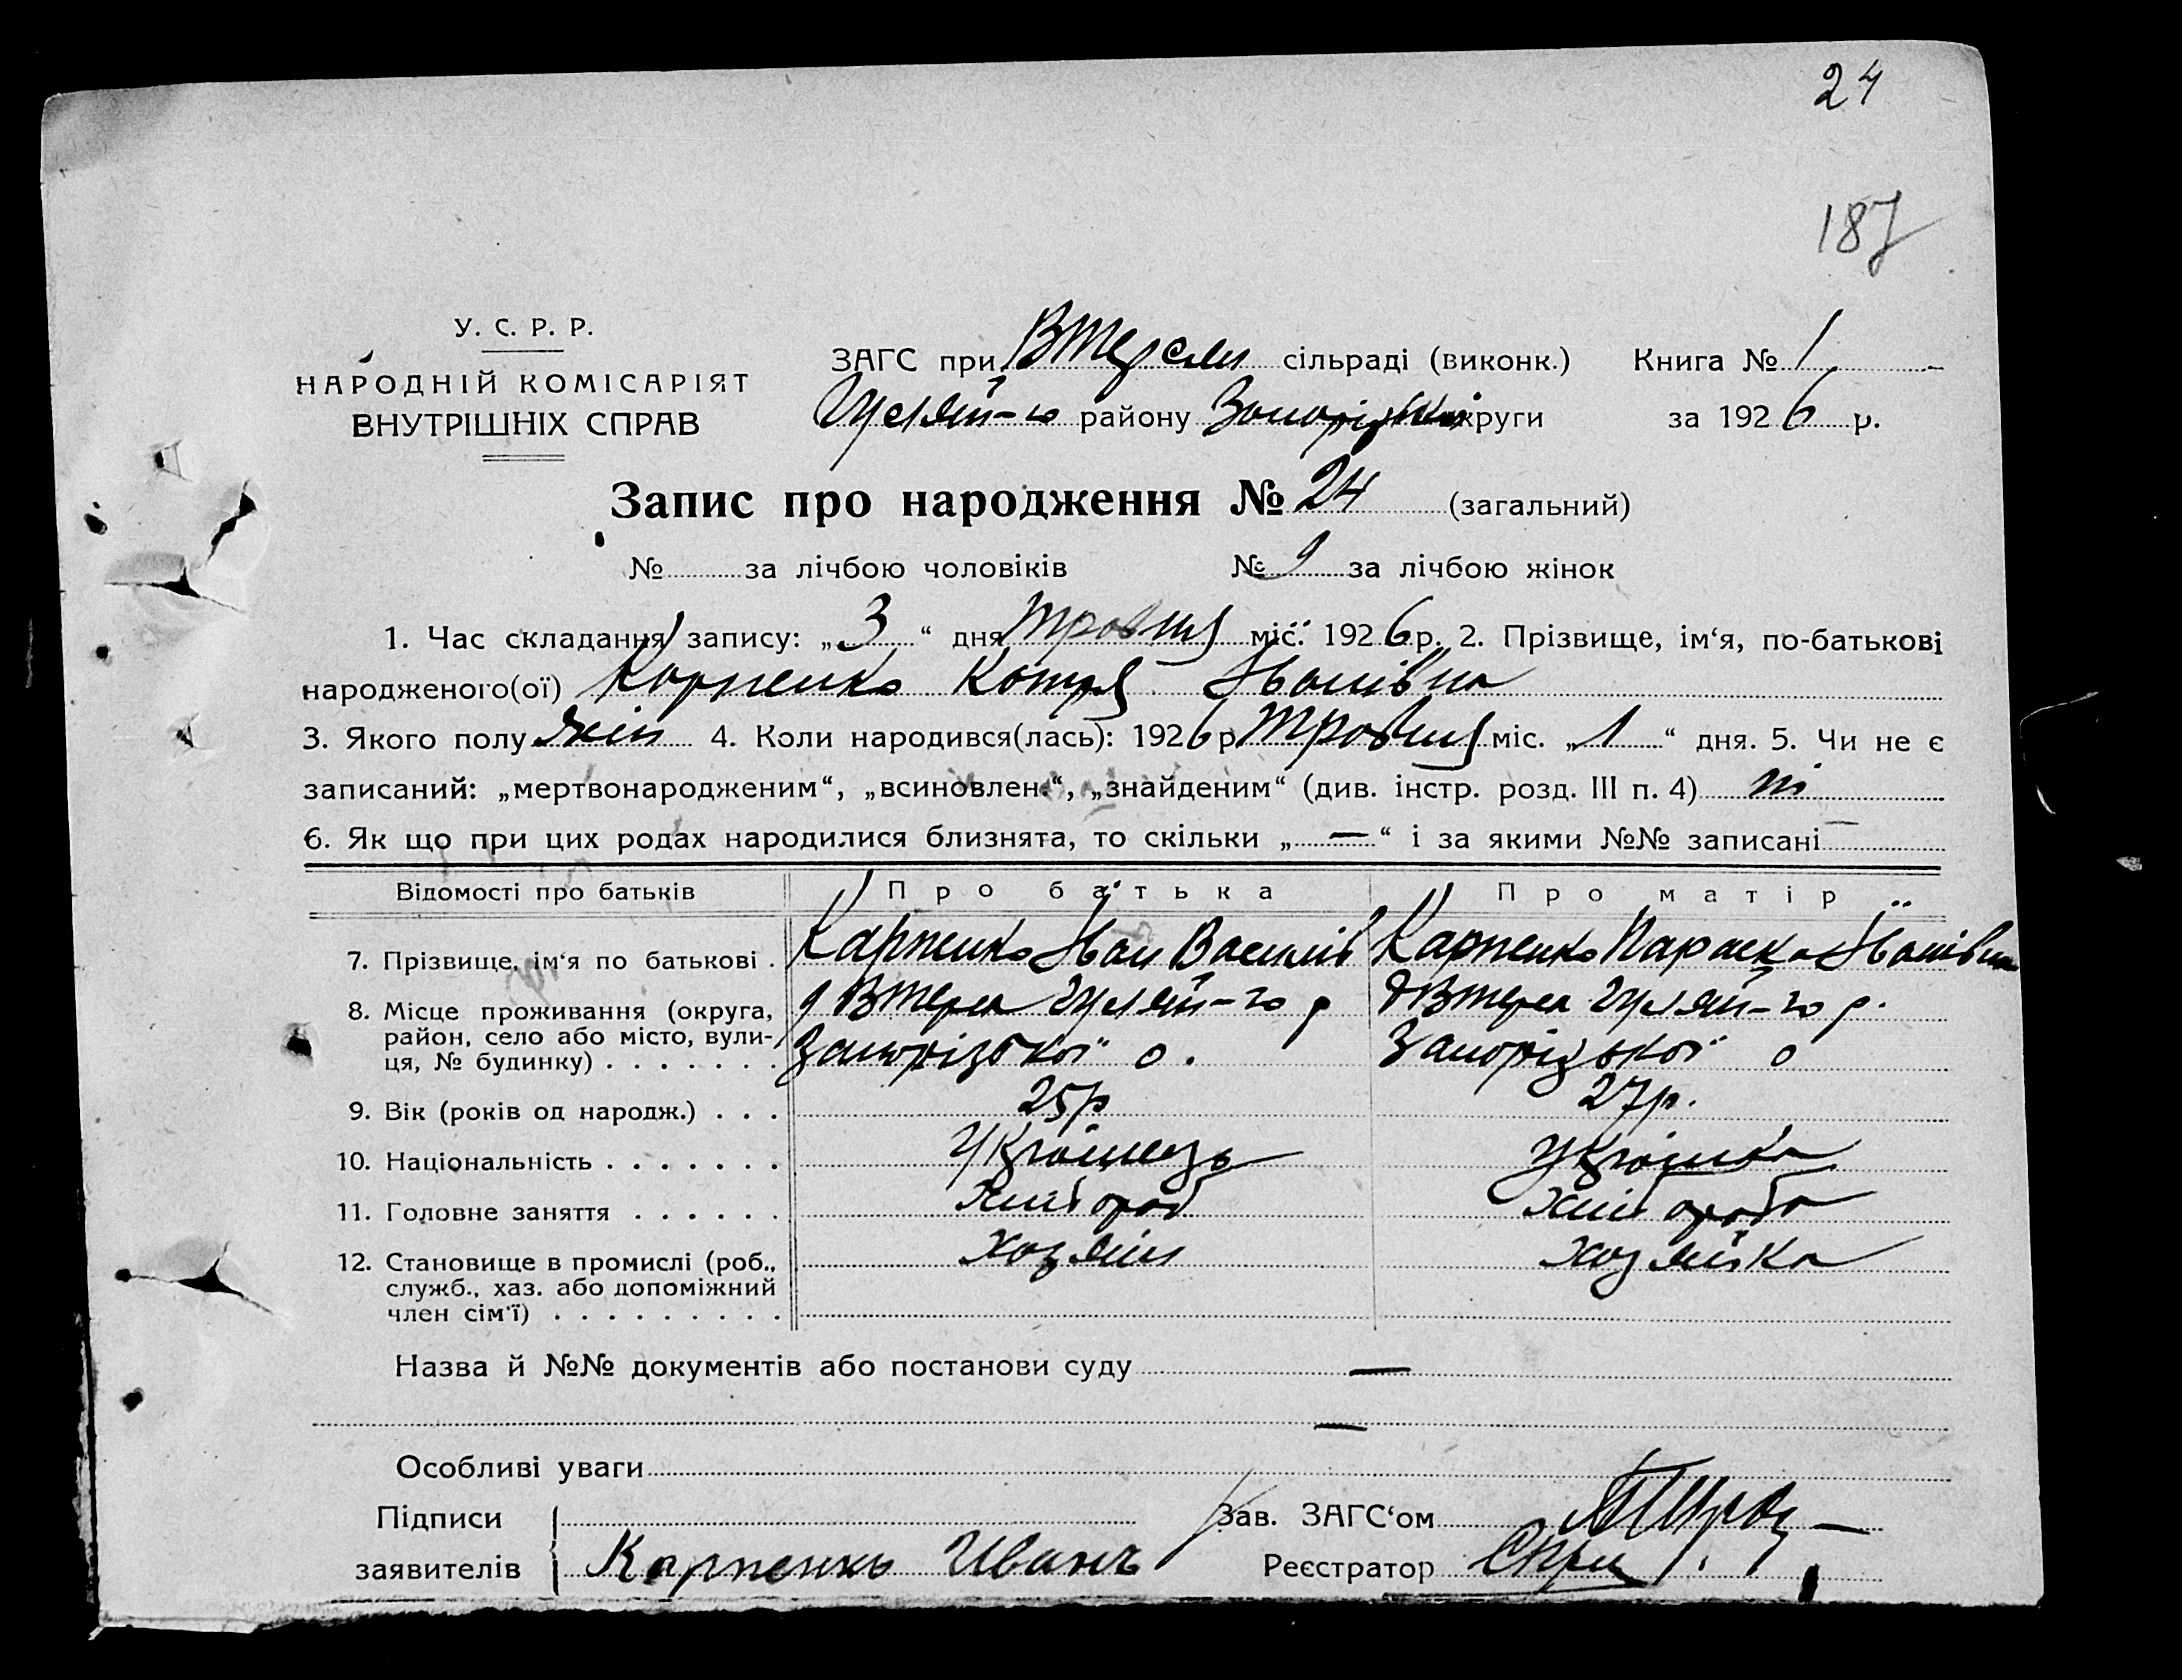 24
187
У. С. Р. Р.
НАРОДНІЙ КОМІСАРІЯТ
ВНУТРІШНІХ СПРАВ
ЗАГС при ВТерсян сільраді (виконк.) Книга № 1
Гуляй-го району Запорізької округи за 1926 р.
Запис про народження № 24 (загальний)
№ за лічбою чоловіків № 9 за лічбою жінок
1. Час складання запису: „3“ дня травня міс. 1926 р. 2. Прізвище, ім‘я, по-батькові
народженого(ої) Карпенко Катря Іванівна
3. Якого полу жін 4. Коли народився(лась): 1926 р травня міс. „1“ дня. 5. Чи не є
записаний: „мертвонародженим“, „всиновлен.“, „знайденим“ (див. інстр. розд. III п. 4) ні
6. Як що при цих родах народилися близнята, то скільки „—“ і за якими №№ записані —
Відомості про батьків Про батька Про матір
7. Прізвище, ім‘я по батькові . Карпенко Іван Василів Карпенко Параска Іванівна
8. Місце проживання (округа, ВТерса Гуляй-го р ВТерса Гуляй-го р.
район, село або місто, вули- Запорізької о. Запорізької о
ця, № будинку) . . . . . . .
9. Вік (років од народж.) . . . 25р 27р.
10. Національність . . . . . . . Українець Українка
11. Головне заняття . . . . . . Хлібороб Хлібороба
12. Становище в промислі (роб., Хозяїн Хозяйка
служб., хаз. або допоміжний
член сім‘ї) . . . . . . . . .
Назва й №№ документів або постанови суду —
—
Особливі уваги
Підписи Зав. ЗАГС‘ом
заявителів Карпенко Иванъ Реєстратор